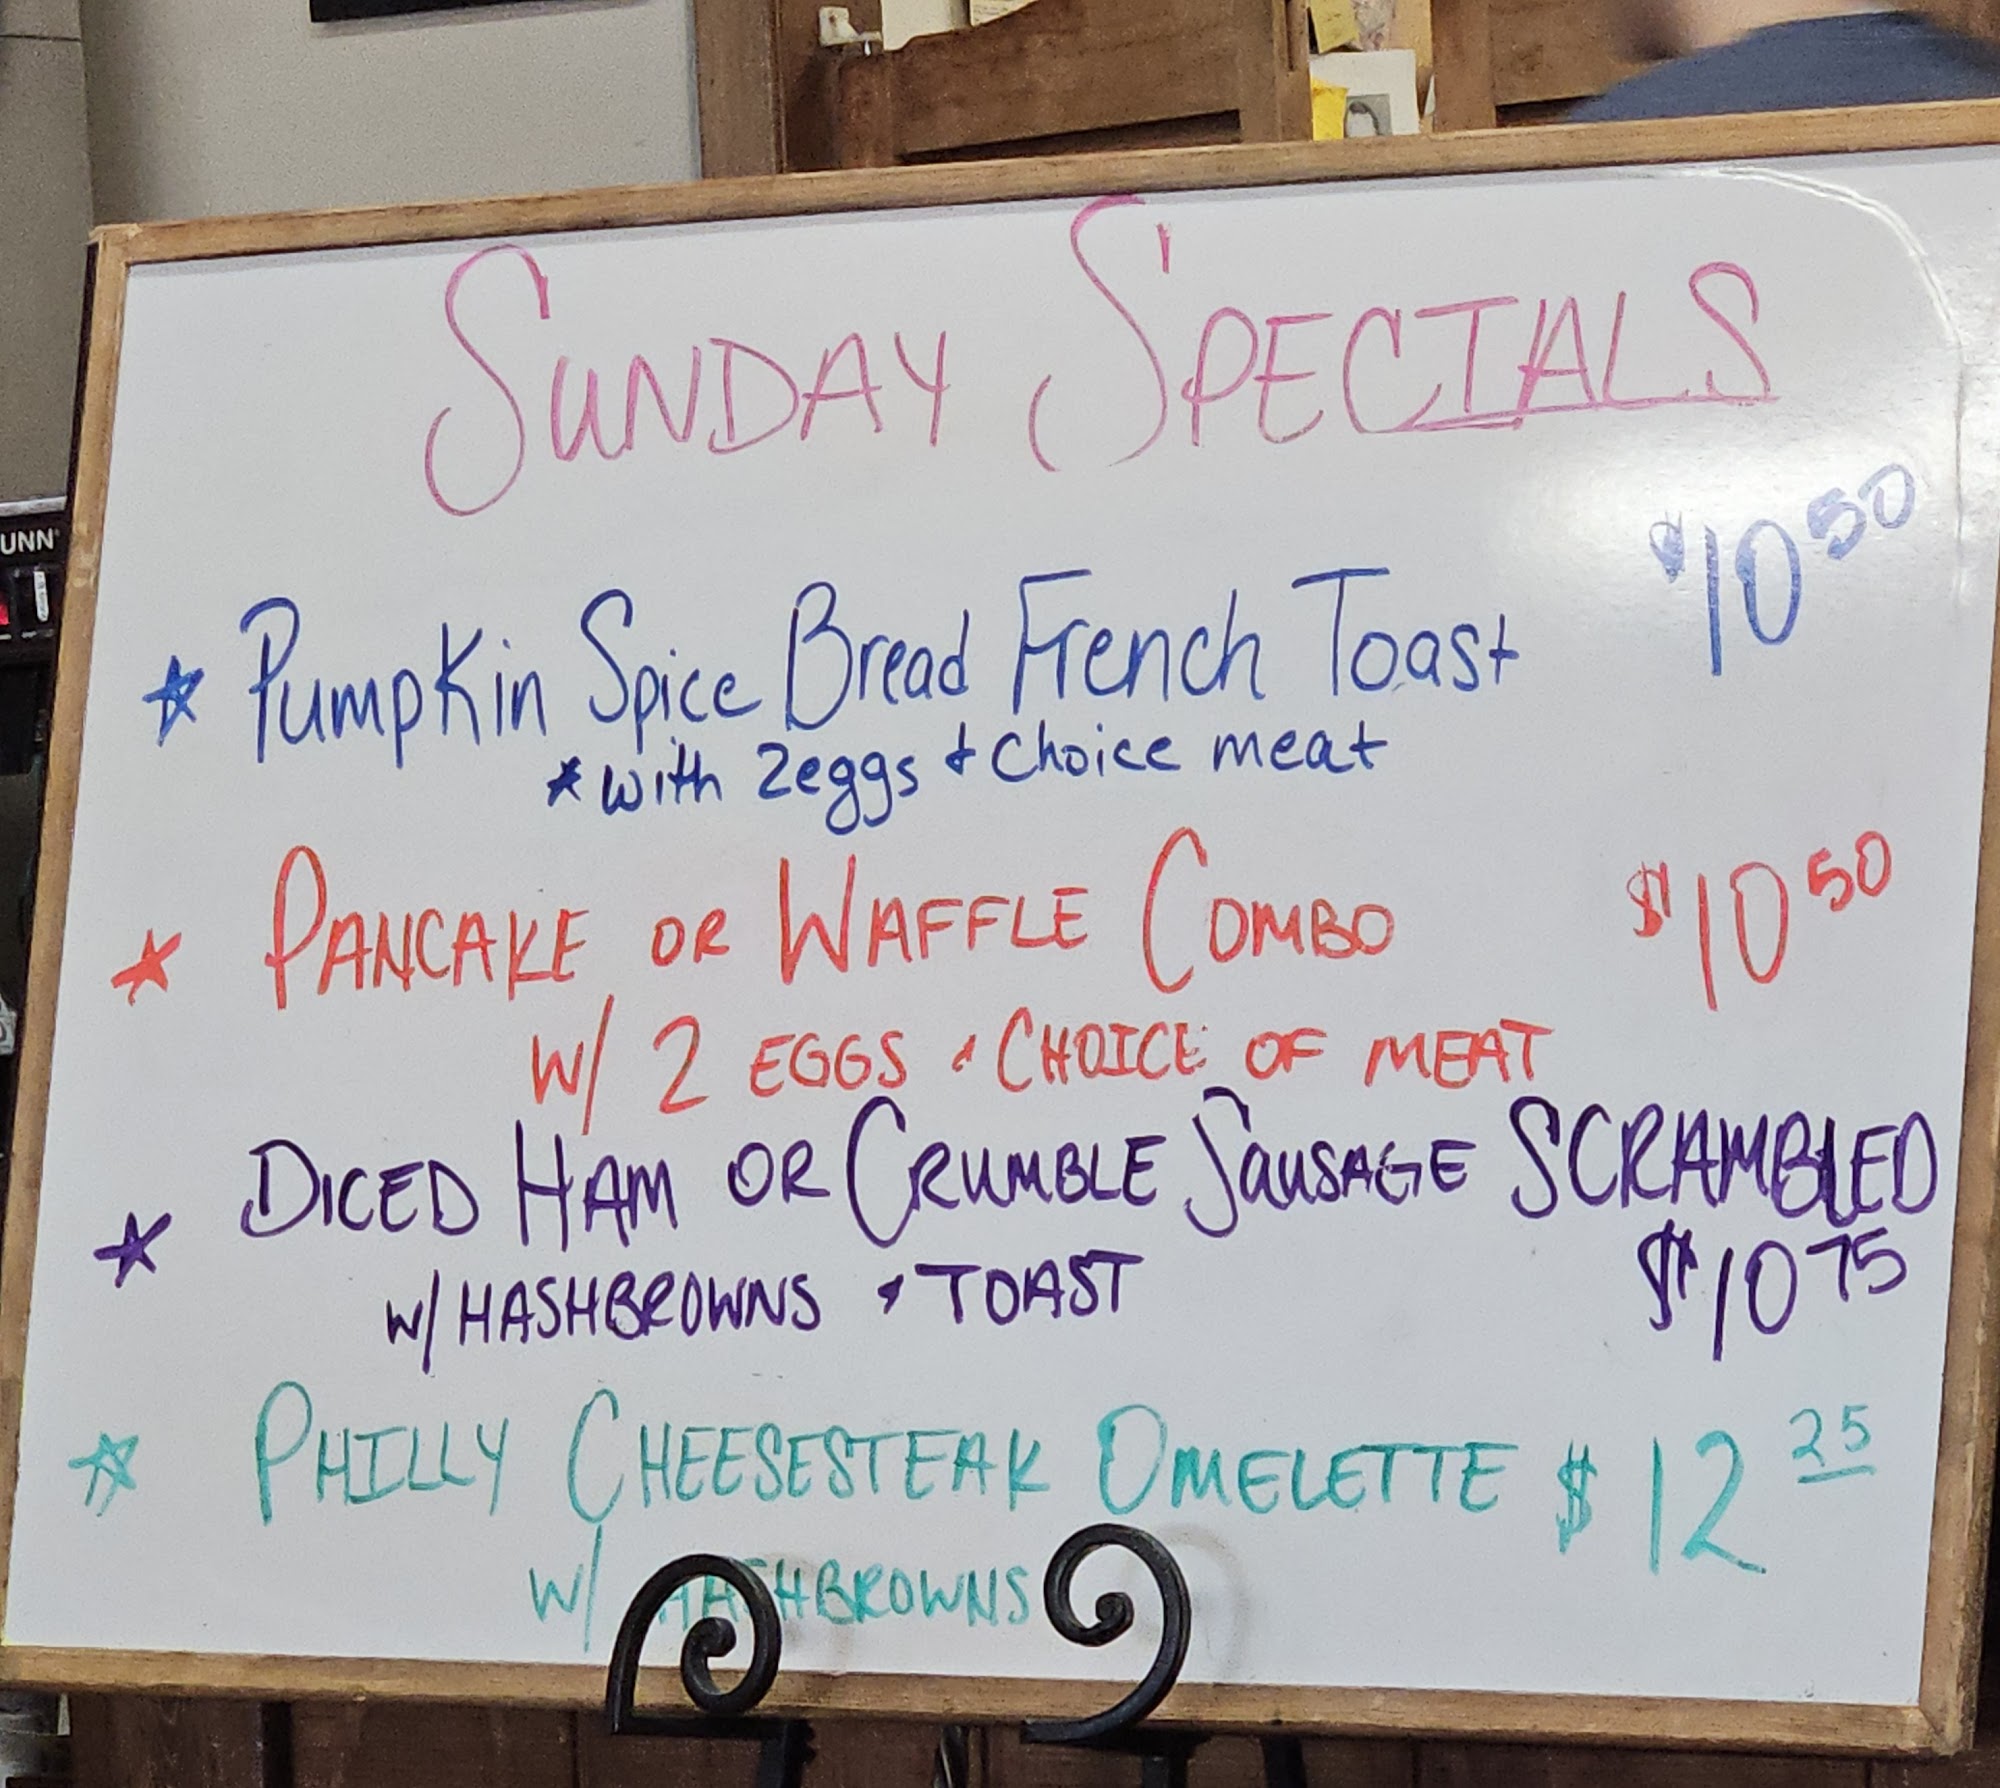 UNN
SUNDAY SPECIALS
$10 50
Pumpkin Spice Bread French Toast
with 2 eggs & choice meat
PANCAKE OR WAFFLE COMBO $10 50
W/ 2 EGGS & CHOICE OF MEAT
DICED HAM OR CRUMBLE SAUSAGE SCRAMBLED
W/ HASHBROWNS & TOAST $10 75
PHILLY CHEESESTEAK OMELETTE $12 25
W/ HASHBROWNS